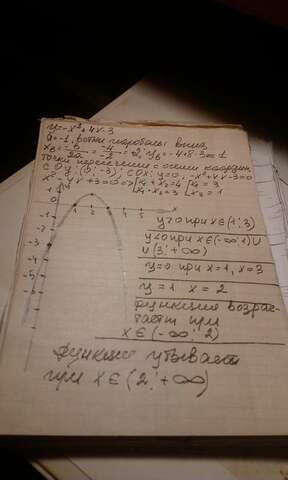 y=-x²+4x-3
a=-1, ветви параболы вниз,
x_B = -b/2a = -4/-2 = 2; y_B = -4+8-3=1
точки пересечения с осями координ.
с Oy: (0; -3); с Ox: y=0, -x²+4x-3=0
x²-4x+3=0 => [x₁+x₂=4 [x₁=3
[x₁·x₂=3 [x₂=1
y>0 при x∈(1; 3)
y<0 при x∈(-∞; 1)∪
∪(3; +∞)
y=0 при x=1, x=3
y=1 x=2
функция возрас-
тает при
x∈(-∞; 2)
функция убывает
при x∈(2; +∞)